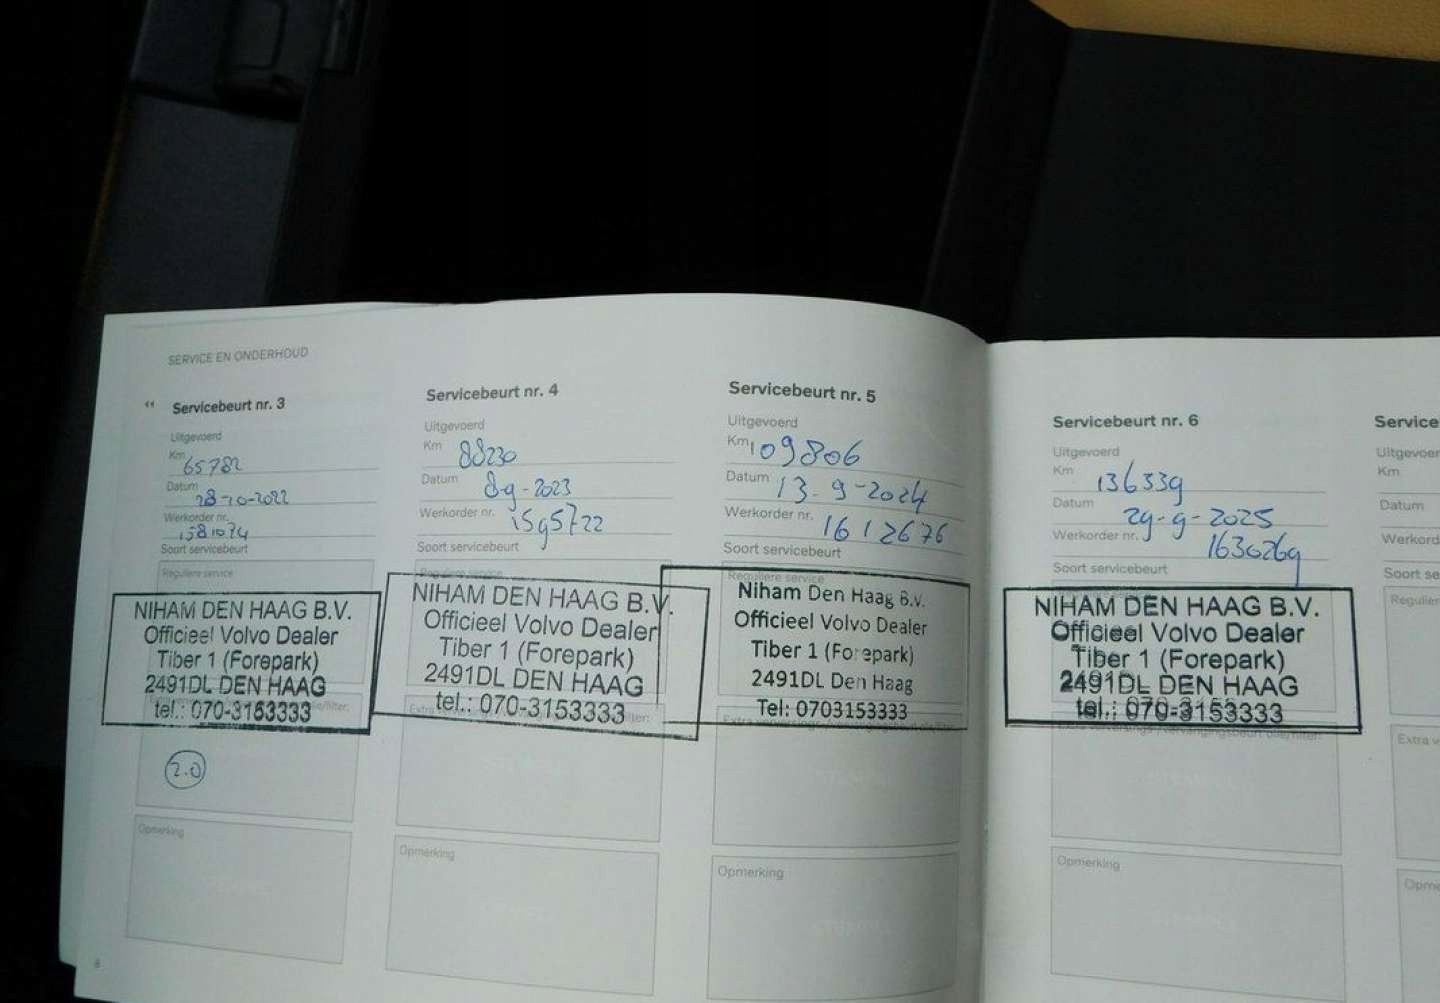 SERVICE EN ONDERHOUD
Servicebeurt nr. 3
Uitgevoerd
Km 65782
Datum 28-10-2022
Werkorder nr. 1581074
Soort servicebeurt
Reguliere service
NIHAM DEN HAAG B.V.
Officieel Volvo Dealer
Tiber 1 (Forepark)
2491DL DEN HAAG
tel.: 070-3153333
2.0
Opmerking
8
Servicebeurt nr. 4
Uitgevoerd
Km 88230
Datum 8-9-2023
Werkorder nr. 1595722
Soort servicebeurt
Reguliere service
NIHAM DEN HAAG B.V.
Officieel Volvo Dealer
Tiber 1 (Forepark)
2491DL DEN HAAG
tel.: 070-3153333
Opmerking
Servicebeurt nr. 5
Uitgevoerd
Km 109806
Datum 13-9-2024
Werkorder nr. 1612676
Soort servicebeurt
Reguliere service
Niham Den Haag B.V.
Officieel Volvo Dealer
Tiber 1 (Forepark)
2491DL Den Haag
Tel: 0703153333
Opmerking
Servicebeurt nr. 6
Uitgevoerd
Km 136339
Datum 29-9-2025
Werkorder nr. 1630269
Soort servicebeurt
NIHAM DEN HAAG B.V.
Officieel Volvo Dealer
Tiber 1 (Forepark)
2491DL DEN HAAG
tel.: 070-3153333
Opmerking
Service
Uitgevoer
Km
Datum
Werkord
Soort se
Regulier
Extra v
Opme